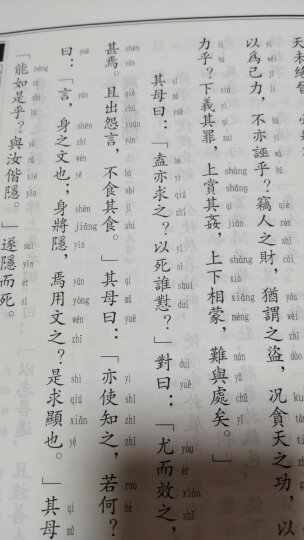 天未絕
以為己力，不亦誣乎？竊人之財，猶謂之盜，況貪天之功，以
力乎？下義其罪，上賞其姦，上下相蒙，難與處矣。」
其母曰：「盍亦求之？以死誰懟？」對曰：「尤而效之，
甚焉。且出怨言，不食其食。」其母曰：「亦使知之，若何？
曰：「言，身之文也；身將隱，焉用文之？是求顯也。」其母
「能如是乎？與汝偕隱。」遂隱而死。